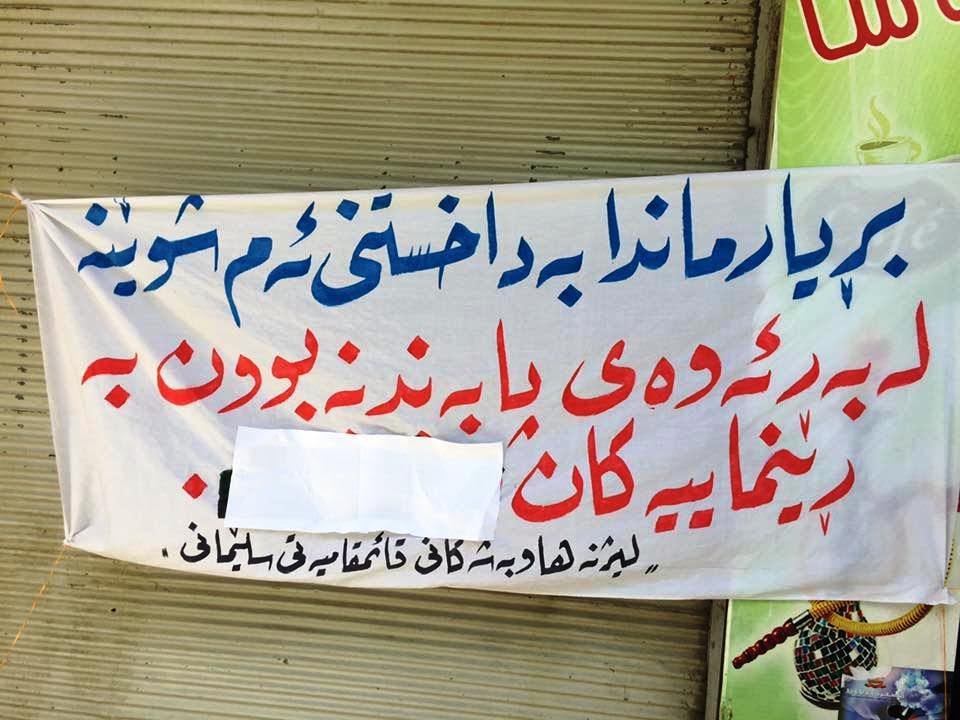 بڕیارماندا بە داخستنی ئەم شوێنە
لەبەر ئەوەی پابەندنەبوون بە
ڕێنماییەکان
" لیژنە هاوبەشەکانی قائمقامیەتی سلێمانی "
Café